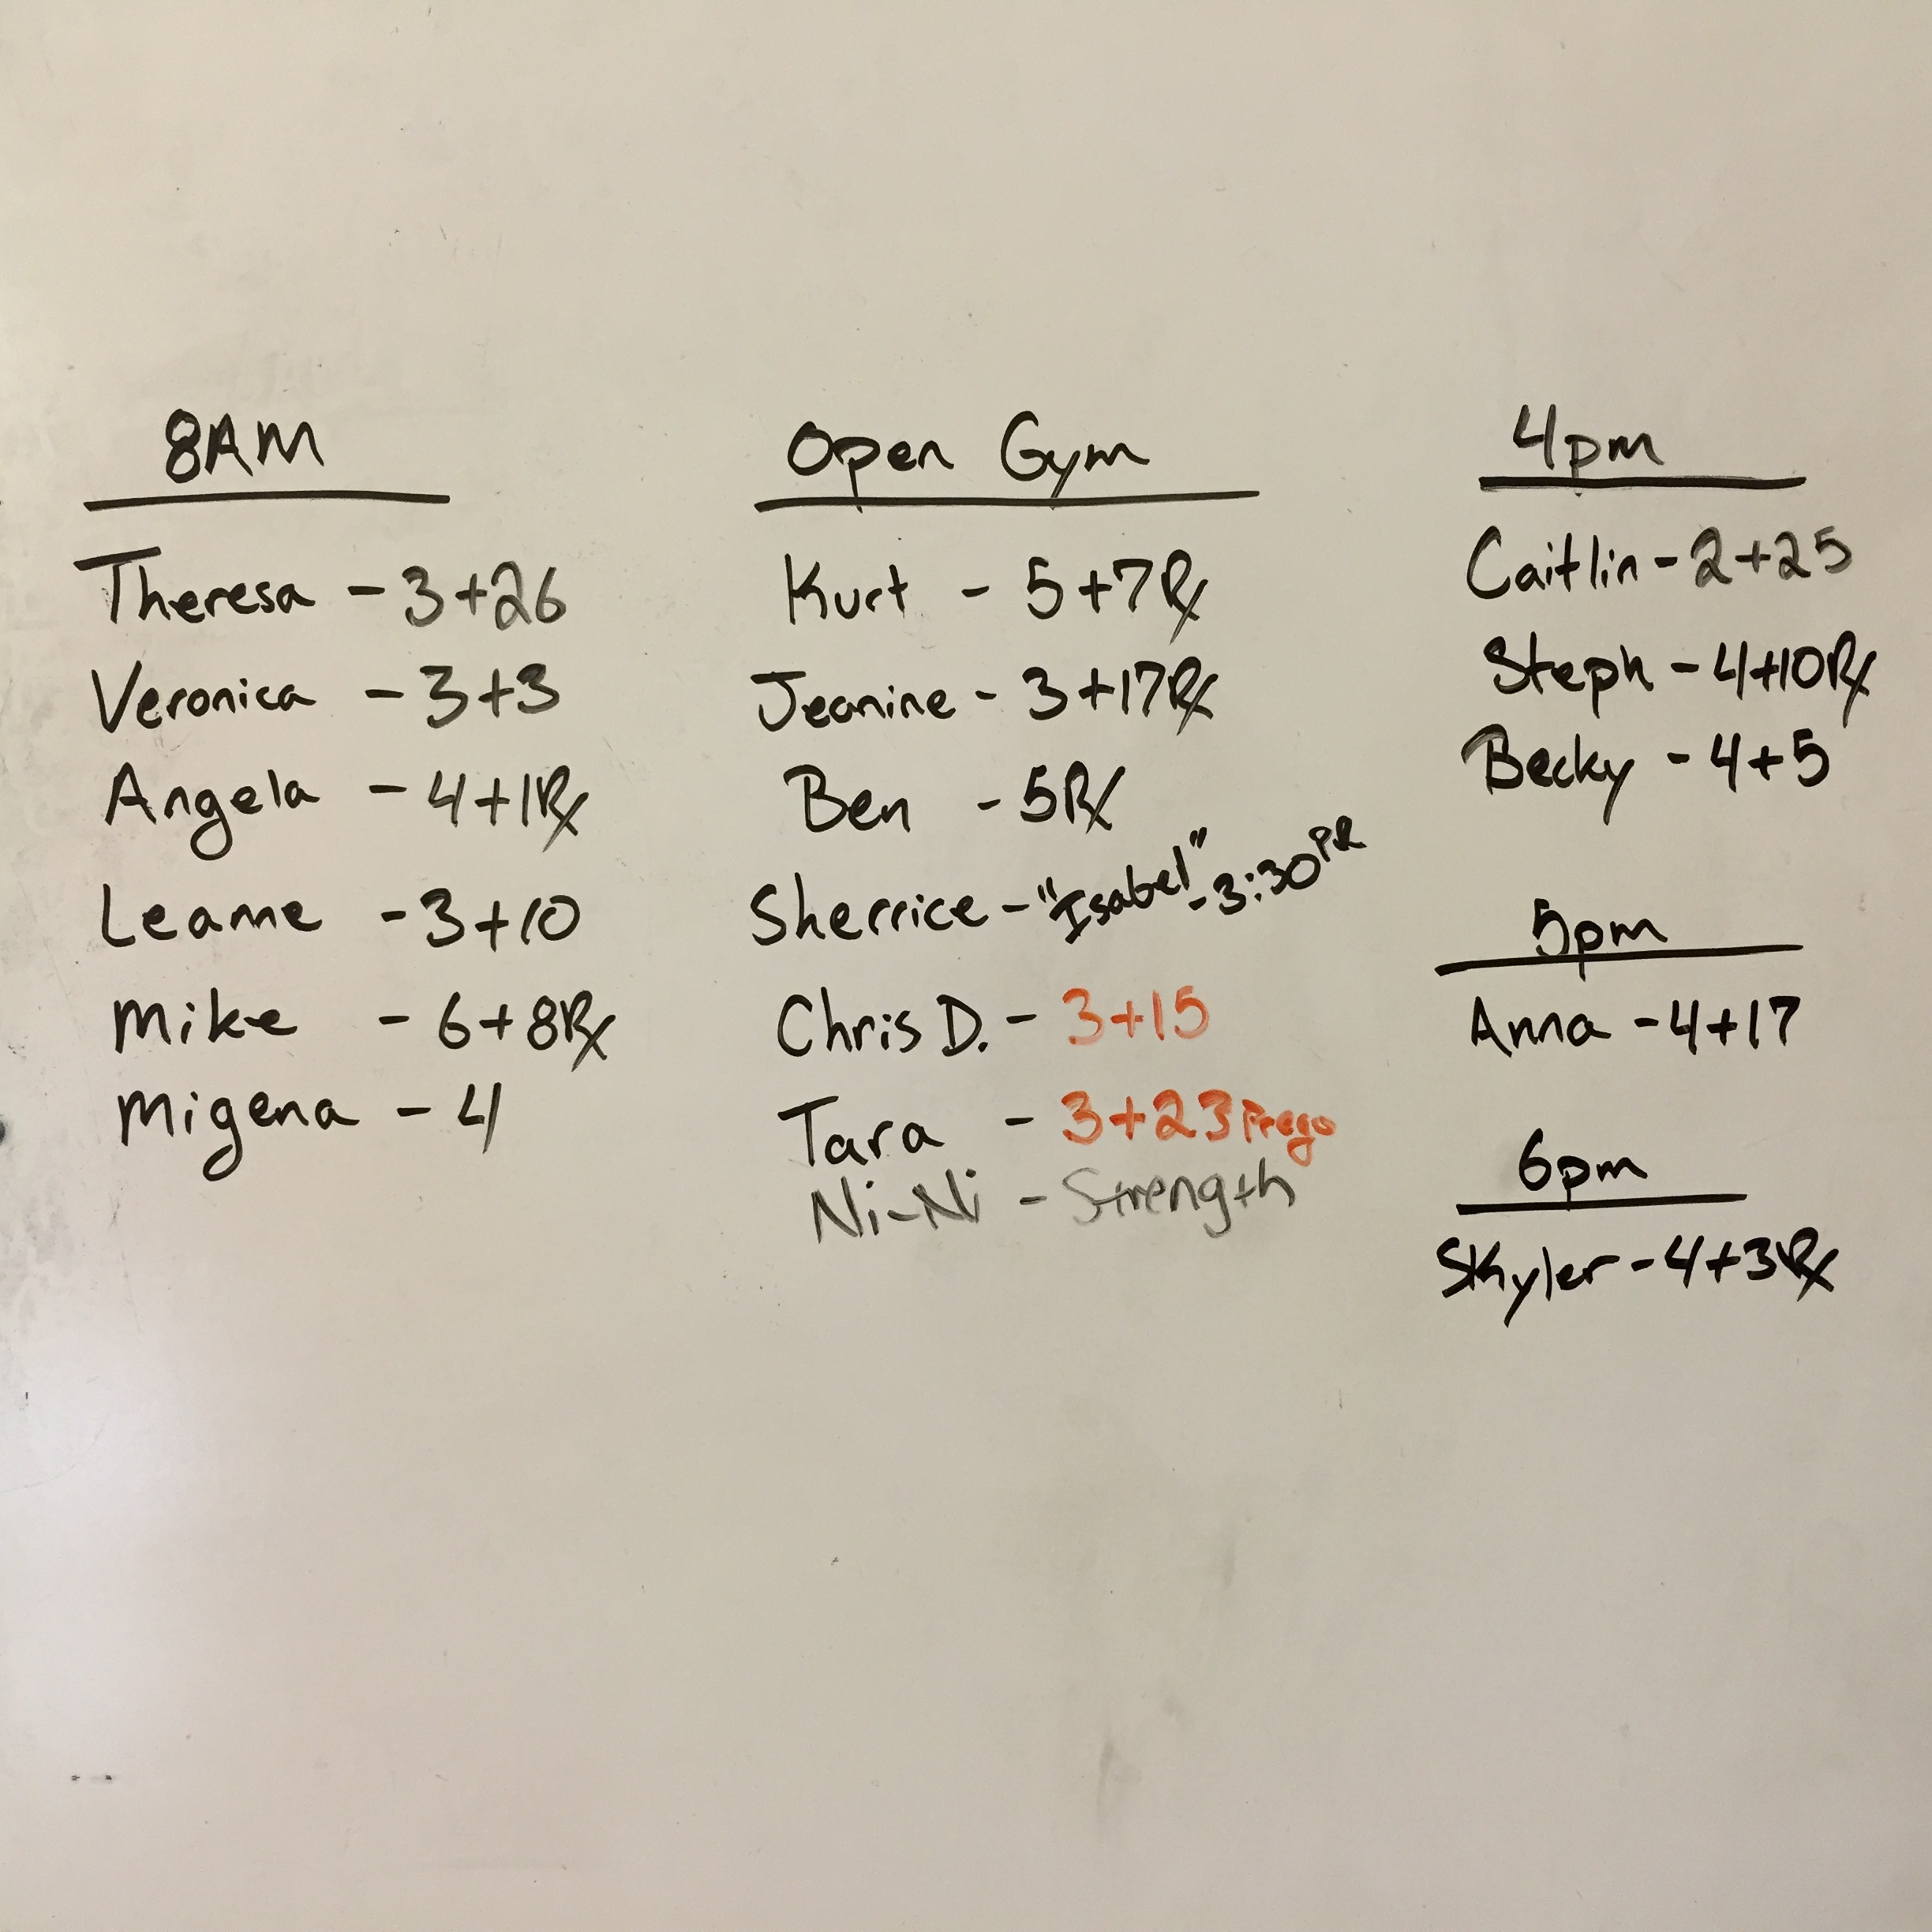 8AM
Theresa - 3+26
Veronica - 3+3
Angela - 4+1Rx
Leanne - 3+10
Mike - 6+8Rx
Migena - 4
Open Gym
Kurt - 5+7Rx
Jeanine - 3+17Rx
Ben - 5Rx
Sherrice - "Isabel" - 3:30 PR
Chris D. - 3+15
Tara - 3+23 Prego
Ni-Ni - Strength
4pm
Caitlin - 2+25
Steph - 4+10Rx
Becky - 4+5
5pm
Anna - 4+17
6pm
Skyler - 4+3Rx